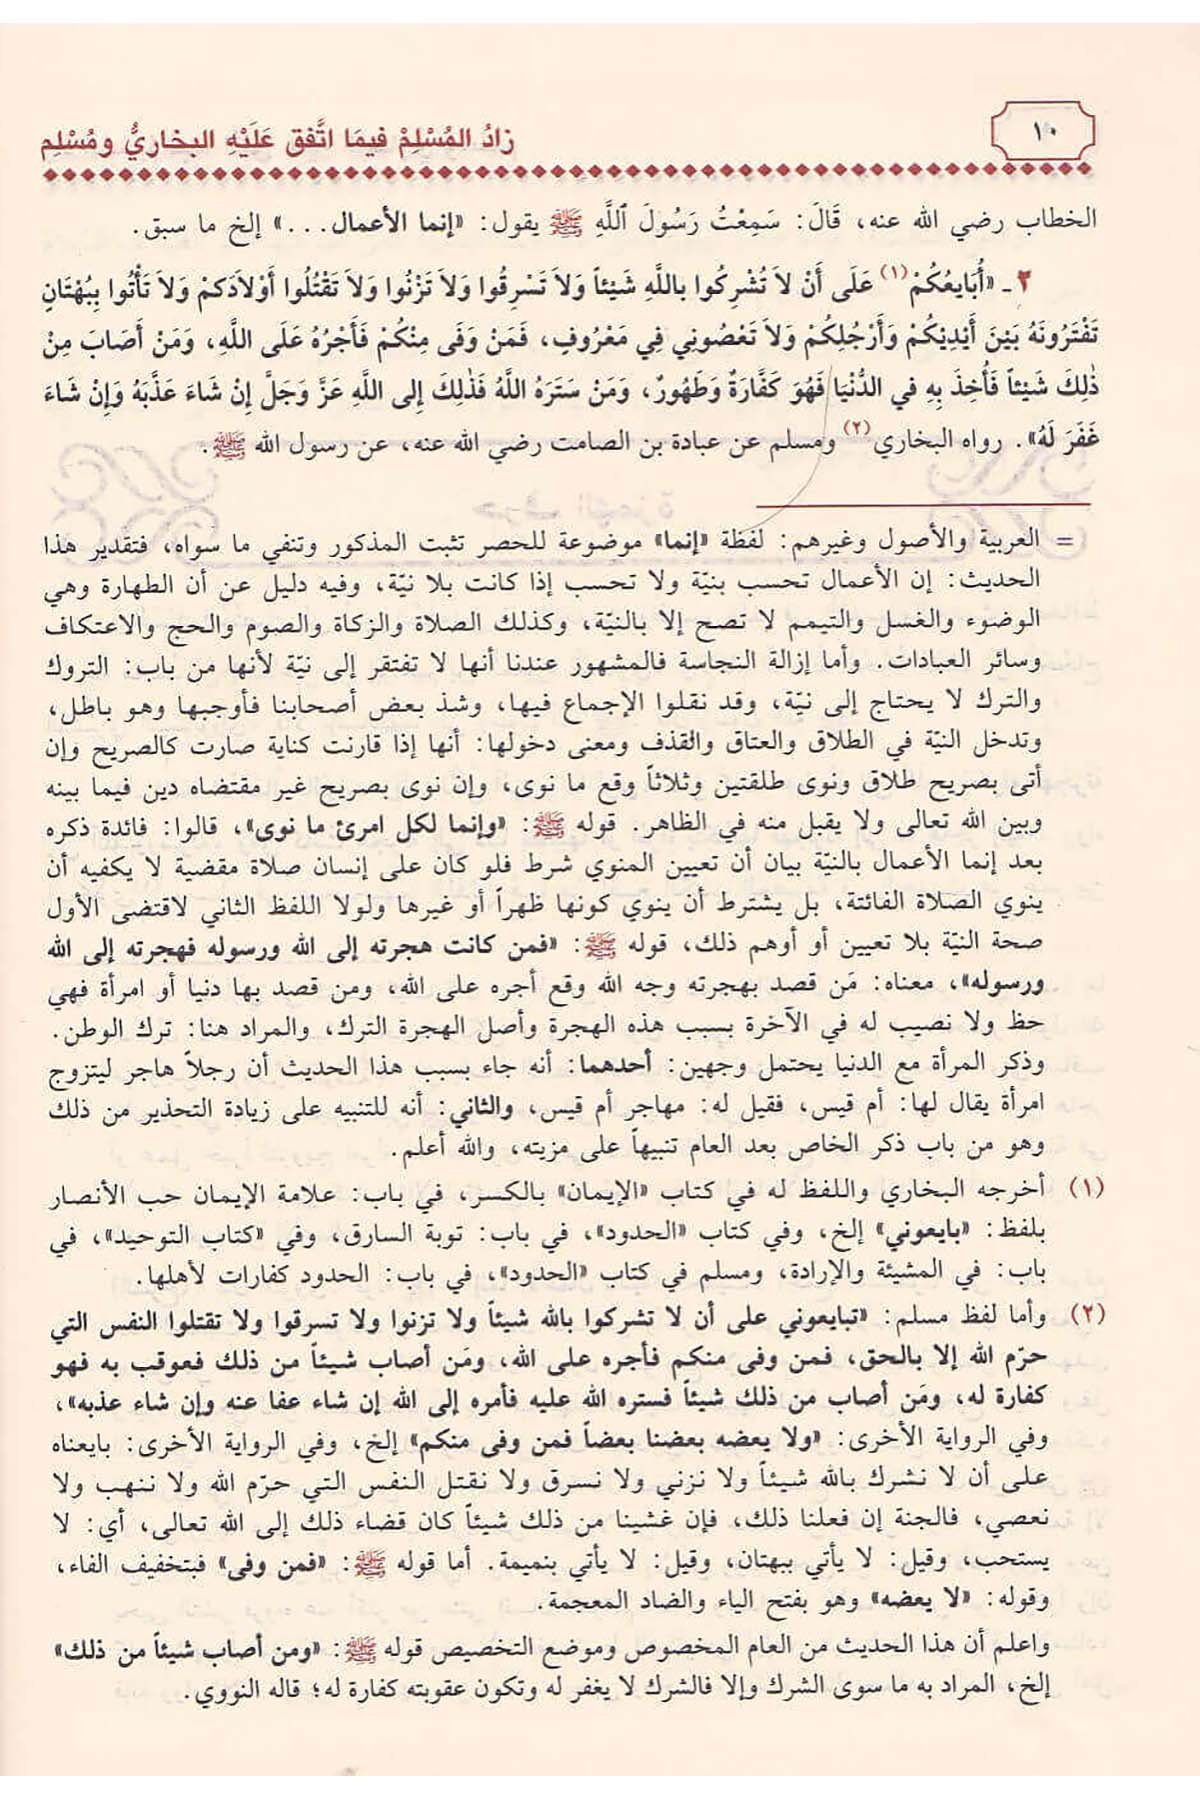 ١٠
زَادُ المُسْلِمْ فيمَا اتَّفق عَلَيْهِ البخاريُّ ومُسْلِم
الخطاب رضي الله عنه، قَالَ: سَمِعْتُ رَسُولَ ٱللَّهِ ﷺ يقول: «إنما الأعمال...» إلخ ما سبق.
٢ ـ «أُبَايعُكُمْ(١) عَلَى أَنْ لاَ تُشْرِكُوا باللَّهِ شَيْئاً وَلاَ تَسْرِقُوا وَلاَ تَزْنُوا وَلاَ تَقْتُلُوا أَوْلاَدَكمْ وَلاَ تَأْتُوا بِبُهْتَانٍ
تَفْتَرُونَهُ بَيْنَ أَيْدِيْكُمْ وَأَرْجُلِكُمْ وَلاَ تَعْصُونِي فِي مَعْرُوفٍ، فَمَنْ وَفَى مِنْكُمْ فَأَجْرُهُ عَلَى اللَّهِ، وَمَنْ أَصَابَ مِنْ
ذٰلِكَ شَيْئاً فَأُخِذَ بِهِ في الدُّنْيَا فَهُوَ كَفَّارَةٌ وَطَهُورٌ، وَمَنْ سَتَرَهُ اللَّهُ فَذٰلِكَ إلى اللَّهِ عَزَّ وَجَلَّ إنْ شَاءَ عَذَّبَهُ وَإنْ شَاءَ
غَفَرَ لَهُ». رواه البخاري(٢) ومسلم عن عبادة بن الصامت رضي الله عنه، عن رسول الله ﷺ.
= العربية والأصول وغيرهم: لفظة «إنما» موضوعة للحصر تثبت المذكور وتنفي ما سواه، فتقدير هذا
الحديث: إن الأعمال تحسب بنية ولا تحسب إذا كانت بلا نيّة، وفيه دليل عن أن الطهارة وهي
الوضوء والغسل والتيمم لا تصح إلا بالنيّة، وكذلك الصلاة والزكاة والصوم والحج والاعتكاف
وسائر العبادات. وأما إزالة النجاسة فالمشهور عندنا أنها لا تفتقر إلى نيّة لأنها من باب: التروك
والترك لا يحتاج إلى نيّة، وقد نقلوا الإجماع فيها، وشذ بعض أصحابنا فأوجبها وهو باطل،
وتدخل النيّة في الطلاق والعتاق والقذف ومعنى دخولها: أنها إذا قارنت كناية صارت كالصريح وإن
أتى بصريح طلاق ونوى طلقتين وثلاثاً وقع ما نوى، وإن نوى بصريح غير مقتضاه دين فيما بينه
وبين الله تعالى ولا يقبل منه في الظاهر. قوله ﷺ: «وإنما لكل امرئ ما نوى»، قالوا: فائدة ذكره
بعد إنما الأعمال بالنيّة بيان أن تعيين المنوي شرط فلو كان على إنسان صلاة مقضية لا يكفيه أن
ينوي الصلاة الفائتة، بل يشترط أن ينوي كونها ظهراً أو غيرها ولولا اللفظ الثاني لاقتضى الأول
صحة النيّة بلا تعيين أو أوهم ذلك، قوله ﷺ: «فمن كانت هجرته إلى الله ورسوله فهجرته إلى الله
ورسوله»، معناه: مَن قصد بهجرته وجه الله وقع أجره على الله، ومن قصد بها دنيا أو امرأة فهي
حظ ولا نصيب له في الآخرة بسبب هذه الهجرة وأصل الهجرة الترك، والمراد هنا: ترك الوطن.
وذكر المرأة مع الدنيا يحتمل وجهين: أحدهما: أنه جاء بسبب هذا الحديث أن رجلاً هاجر ليتزوج
امرأة يقال لها: أم قيس، فقيل له: مهاجر أم قيس، والثاني: أنه للتنبيه على زيادة التحذير من ذلك
وهو من باب ذكر الخاص بعد العام تنبيهاً على مزيته، والله أعلم.
(١) أخرجه البخاري واللفظ له في كتاب «الإيمان» بالكسر، في باب: علامة الإيمان حب الأنصار
بلفظ: «بايعوني» إلخ، وفي كتاب «الحدود»، في باب: توبة السارق، وفي «كتاب التوحيد»، في
باب: في المشيئة والإرادة، ومسلم في كتاب «الحدود»، في باب: الحدود كفارات لأهلها.
(٢) وأما لفظ مسلم: «تبايعوني على أن لا تشركوا بالله شيئاً ولا تزنوا ولا تسرقوا ولا تقتلوا النفس التي
حرّم الله إلا بالحق، فمن وفى منكم فأجره على الله، ومَن أصاب شيئاً من ذلك فعوقب به فهو
كفارة له، ومَن أصاب من ذلك شيئاً فستره الله عليه فأمره إلى الله إن شاء عفا عنه وإن شاء عذبه»،
وفي الرواية الأخرى: «ولا يعضه بعضنا بعضاً فمن وفى منكم» إلخ، وفي الرواية الأخرى: بايعناه
على أن لا نشرك بالله شيئاً ولا نزني ولا نسرق ولا نقتل النفس التي حرّم الله ولا ننهب ولا
نعصي، فالجنة إن فعلنا ذلك، فإن غشينا من ذلك شيئاً كان قضاء ذلك إلى الله تعالى، أي: لا
يستحب، وقيل: لا يأتي ببهتان، وقيل: لا يأتي بنميمة. أما قوله ﷺ: «فمن وفى» فبتخفيف الفاء،
وقوله: «لا يعضه» وهو بفتح الياء والضاد المعجمة.
واعلم أن هذا الحديث من العام المخصوص وموضع التخصيص قوله ﷺ: «ومن أصاب شيئاً من ذلك»
إلخ، المراد به ما سوى الشرك وإلا فالشرك لا يغفر له وتكون عقوبته كفارة له؛ قاله النووي.